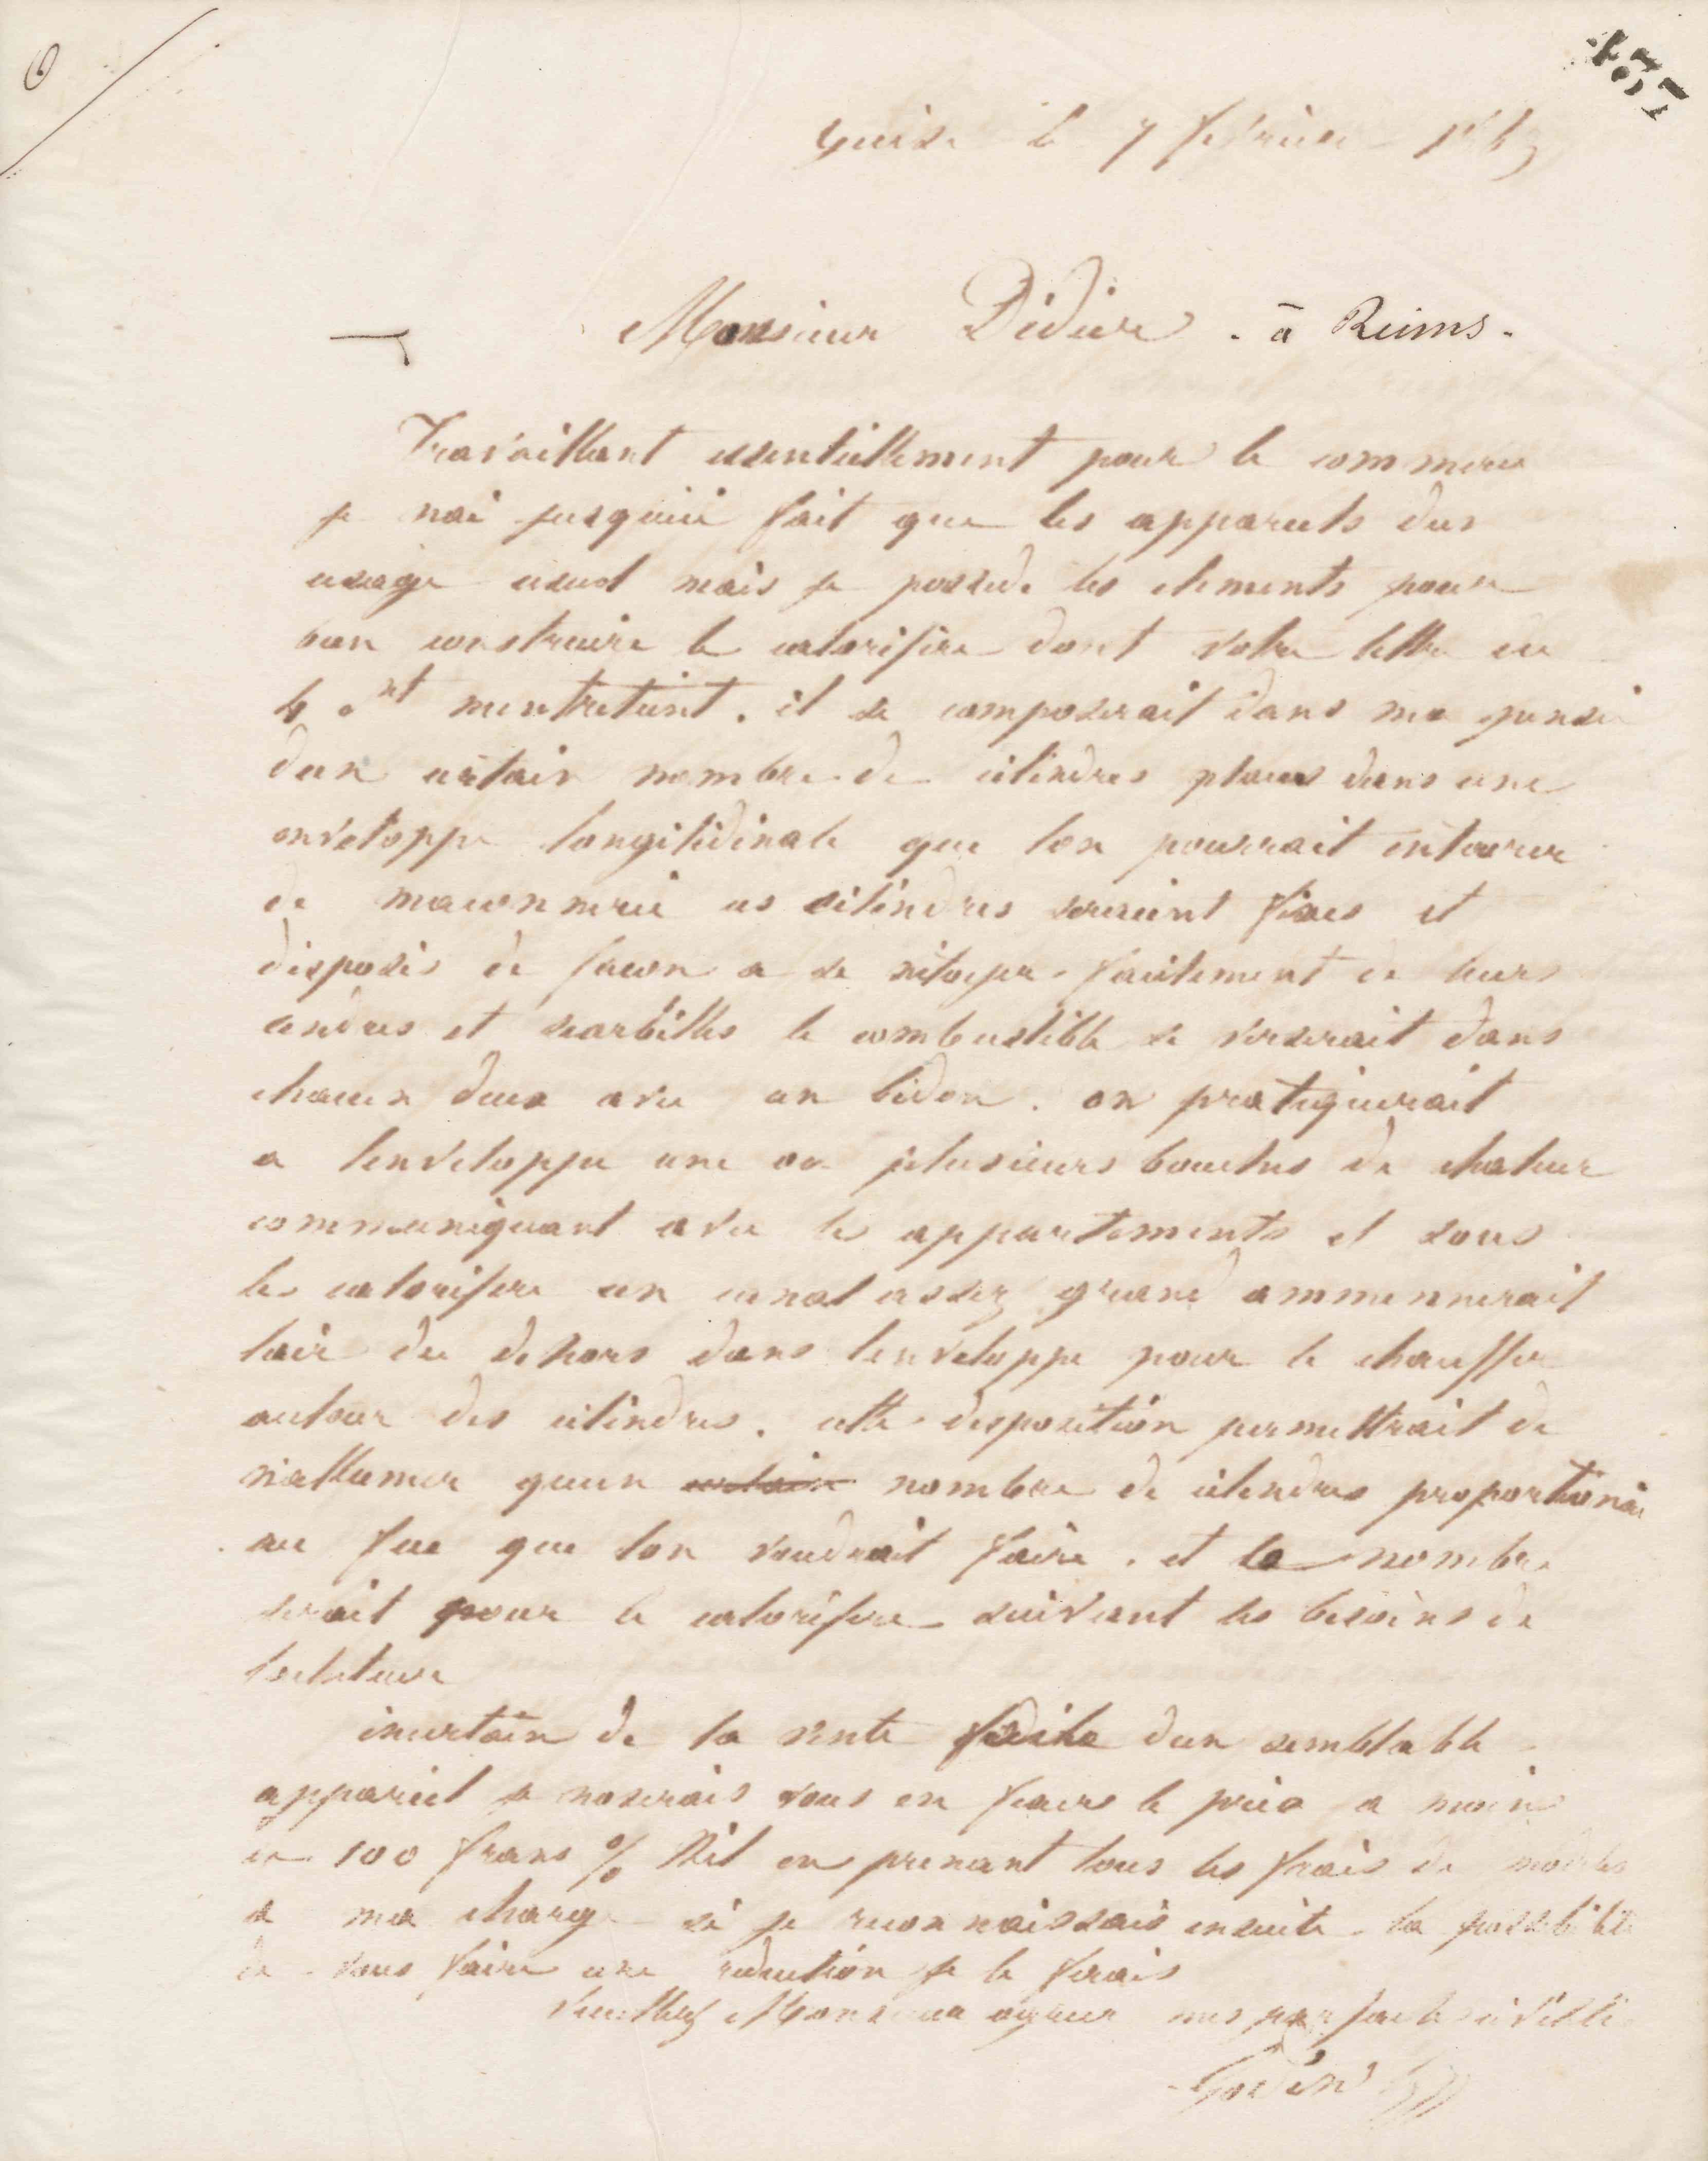 6
457
Guise le 7 février
Monsieur Didier . à Reims .
Travaillant essentiellement pour le commerce
je nai jusquici fait que les appareils dun
usage usuel mais je possede les elements pour
bien construire le calorifere dont votre lettre du
4 ct mentretient . il se composerait dans ma pensée
dun certain nombre de cilindres places dans une
enveloppe longitidinale que lon pourrait entourer
de maconnerie ces cilindres seraient fixes et
disposés de facon a se nétoyer facilement de leurs
cendres et scarbilles le combustible se verserait dans
chacun deux avec un bidon . on pratiquerait
a lenveloppe une ou plusieurs bouches de chaleur
communiquant avec les appartements et sous
le calorifere un canal assez grand ammennerait
lair du dehors dans lenveloppe pour le chauffer
autour des cilindres . cette disposition permettrait de
nallumer quun certain nombre de cilindres proportionné
au feu que lon voudrait faire . et le nombre
serait pour le calorifere suivant les besoins de
lacheteur
incertain de la vente facile dun semblable
appareil je noserais vous en fixer le prix a moin
de 100 francs % Kil en prenant tous les frais de modeles
a ma charge si je reconnaissais ensuite la possibilité
de vous faire une reduction je le ferais
Veuillez Monsieur agreer mes parfaite civilité
Godin